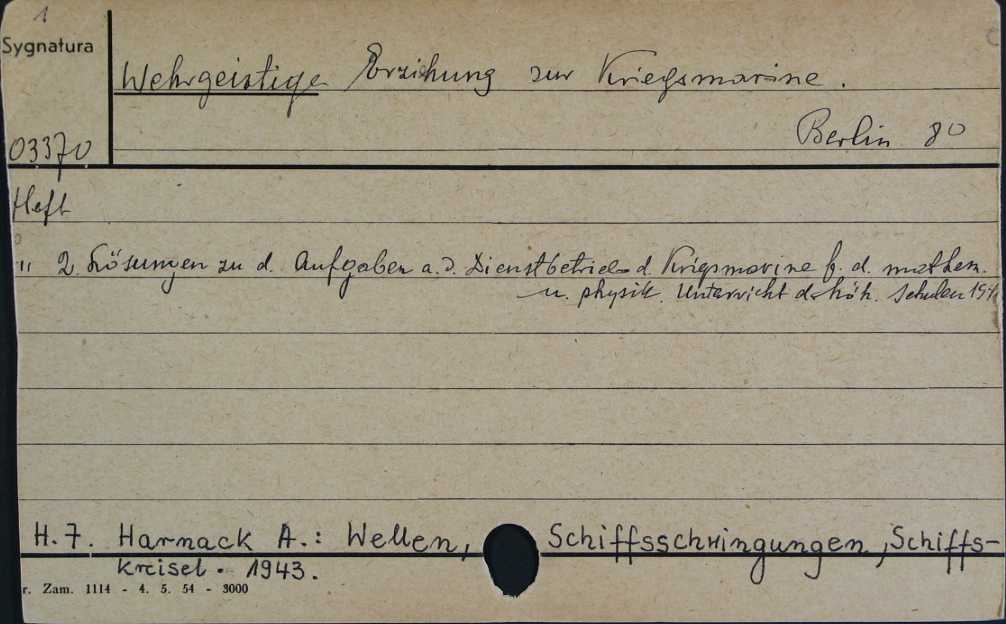 1
Sygnatura
Wehrgeistige Erziehung zur Kriegsmarine.
Berlin 8°
03370
Heft
" 2. Lösungen zu d. Aufgaben a. d. Dienstbetrieb d. Kriegsmarine f. d. mathem.
u. physik. Unterricht d. höh. Schulen
H. 7. Harnack A.: Wellen, Schiffsschwingungen, Schiffs-
kreisel. 1943.
r. Zam. 1114 - 4. 5. 54 - 3000